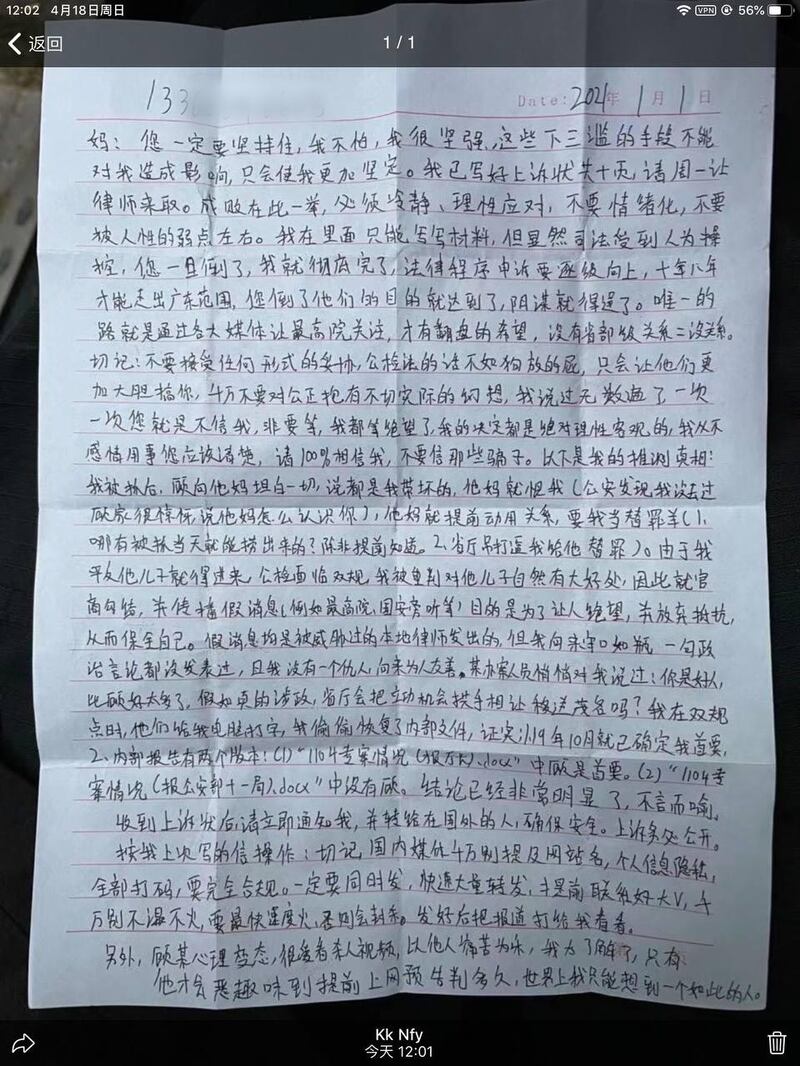 12:02 4月18日周日
VPN 56%
返回
1 / 1
133
Date: 2021年 1月 1日
妈：您一定要坚持住，我不怕，我很坚强，这些下三滥的手段不能
对我造成影响，只会使我更加坚定。我已写好上诉状共十页，请周一让
律师来取。成败在此一举，必须冷静、理性应对，不要情绪化，不要
被人性的弱点左右。我在里面只能写写材料，但显然司法受到人为操
控，您一旦倒了，我就彻底完了，法律程序申诉要逐级向上，十年八年
才能走出广东范围，您倒了他们的目的就达到了，阴谋就得逞了。唯一的
路就是通过各大媒体让最高院关注，才有翻盘的希望，没有省部级关系=没关系。
切记：不要接受任何形式的妥协，公检法的话不如狗放的屁，只会让他们更
加大胆搞你，千万不要对公正抱有不切实际的幻想，我说过无数遍了，一次
一次您就是不信我，非要等，我都等绝望了，我的决定都是绝对理性客观的，我从不
感情用事您应该清楚，请100%相信我，不要信那些骗子。以下是我的推测真相：
我被抓后，顾向他妈坦白一切，说都是我带坏的，他妈就恨我（公安发现我没去过
顾家很惊讶，说他妈怎么认识你），他妈就提前动用关系，要我当替罪羊（1、
哪有被抓当天就能捞出来的？除非提前知道。2、省厅吊打逼我给他替罪）。由于我
平反他儿子就得进来，公检面临双规，我被重判对他儿子自然有大好处，因此就官
商勾结，并传播假消息（例如最高院、国安旁听等）目的是为了让人绝望，并放弃抵抗，
从而保全自己。假消息均是被威胁过的本地律师发出的，但我向来守口如瓶，一句政
治言论都没发表过，且我没有一个仇人，向来为人友善。某办案人员悄悄对我说过：你是好人，
比顾好太多了，假如真的涉政，省厅会把立功机会拱手相让移送茂名吗？我在双规
点时，他们给我电脑打字，我偷偷恢复了内部文件，证实：1、19年10月就已确定我首要，
2、内部报告有两个版本：(1)“1104专案情况（报厅长）.docx”中顾是首要。(2)“1104专
案情况（报公安部十一局）.docx”中没有顾。结论已经非常明显了，不言而喻。
收到上诉状后，请立即通知我，并转给在国外的人，确保安全。上诉务必公开。
按我上次写的信操作：切记，国内媒体千万别提及网站名，个人信息隐私，
全部打码，要完全合规。一定要同时发，快速大量转发，提前联系好大V，千
万别不温不火，要最快速度火，否则会封杀。发好后把报道打给我看看。
另外，顾某心理变态，很爱看杀人视频，以他人痛苦为乐，我为了解了，只有
他才会恶趣味到提前上网预告判多久，世界上我只能想到一个如此的人。
Kk Nfy
今天 12:01